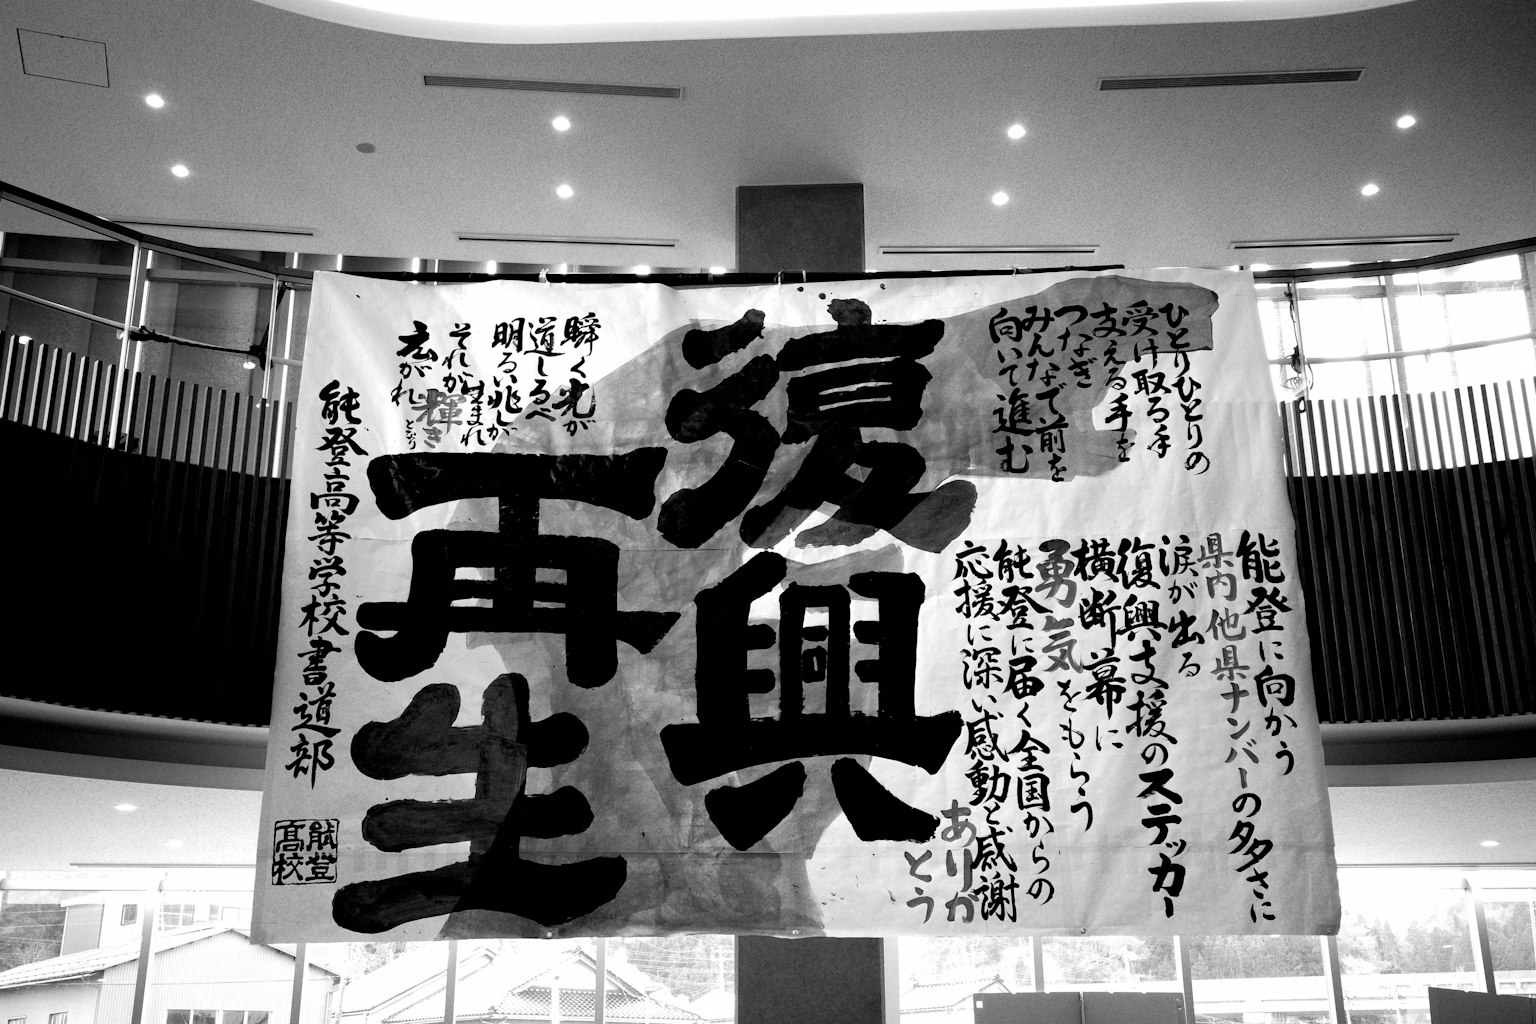 ひとりひとりの
受け取る手
支える手を
つなぎ
みんなで前を
向いて進む
能登に向かう
県内他県ナンバーの多さに
涙が出る
復興支援のステッカー
横断幕に
勇気をもらう
能登に届く全国からの
応援に深い感動と感謝
ありが
とう
復興
再生
瞬く光が
道しるべ
明るい兆しが
生まれ
それが
輝き
となり
広がれ
能登高等学校書道部
能登
高校